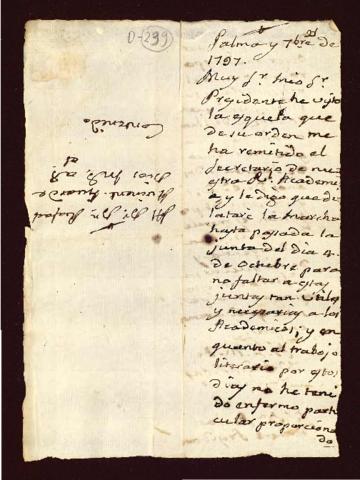 0-299
Palma y 7bre 22 de
1797.
Muy Sr. mio Sr.
Presidente he visto
la esquela que
de su orden me
ha remitido el
Secretario de nu
estra Rl. Academi
a y le digo que de
latare la marcha
hasta pasada la
junta del dia 4
de Octubre para
no faltar a estas
juntas tan utiles
y necesarias a los
Academicos; y en
quanto al trabajo
literario por estos
dias no he teni
do enfermo parti
cular proporciona
do